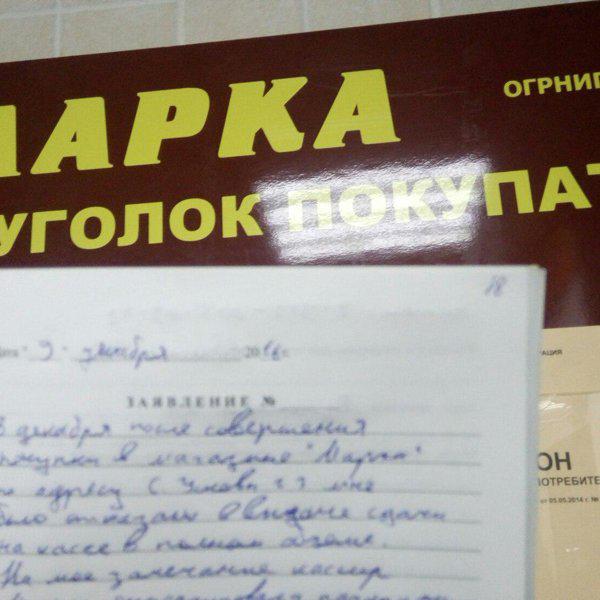 МАРКА
ОГРНИП
УГОЛОК ПОКУПАТ
18
9 декабря 2016 г.
ЗАЯВЛЕНИЕ №
декабря после совершения
покупки в магазине "Марка"
по адресу мне
было отказано в выдаче сдачи
на кассе в полном объеме.
На мое замечание кассир
ОН
ПОТРЕБИТЕ
от 05.05.2014 г. №